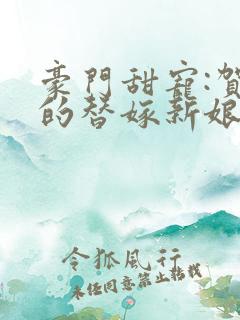 豪門甜寵:賀
的替嫁新娘
令狐風行
未任同意禁止轉載